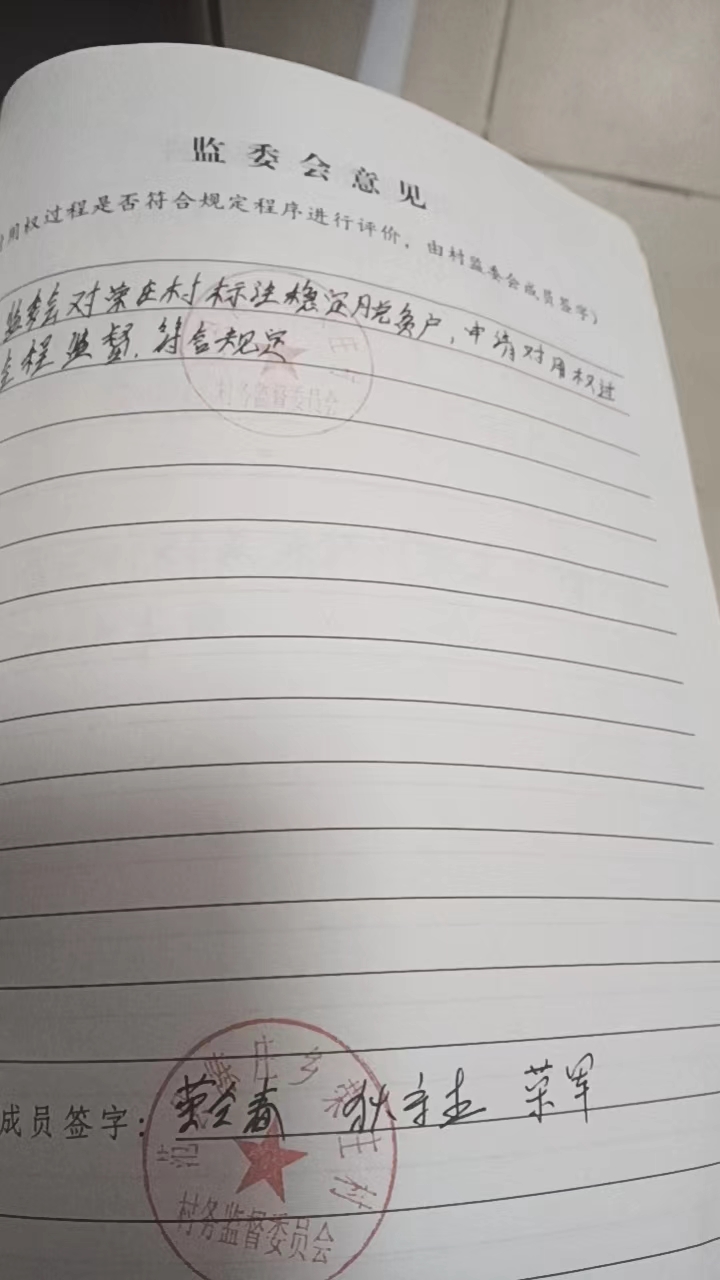 监委会意见
用权过程是否符合规定程序进行评价，由村监委会成员签字）
监委会对荣庄村标注稳定脱贫户，申请对用权过
程监督，符合规定
村务监督委员会
成员签字：
荣军
庄乡荣庄村
村务监督委员会